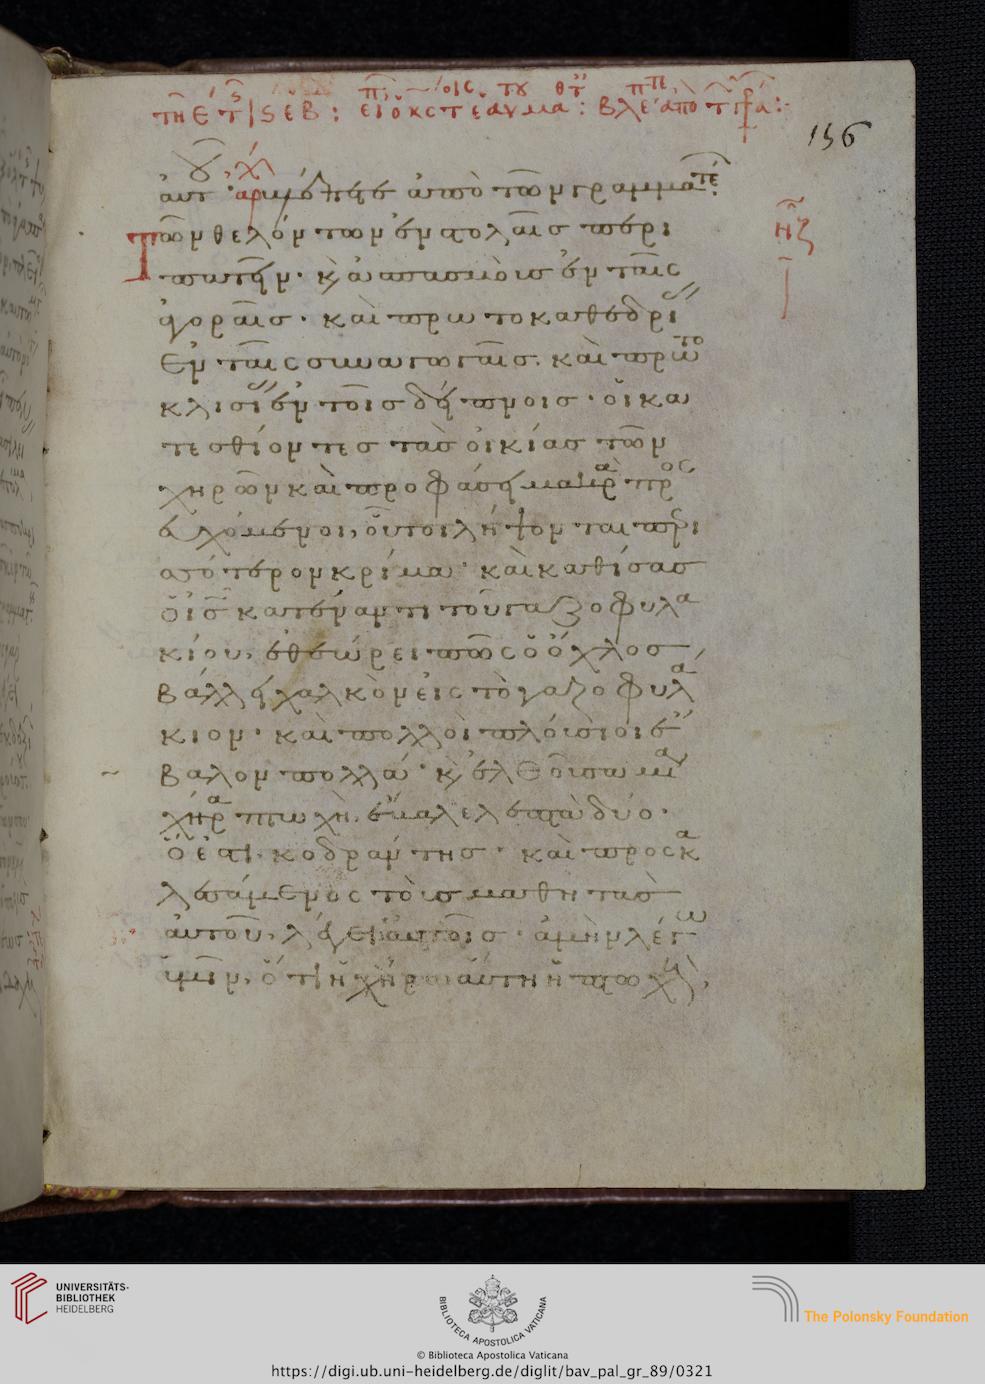 156
τῶν θελόντων ἐν στολαῖς περι
πατεῖν· κ̀ ἀσπασμοὺς ἐν ταῖς
ἀγοραῖς· καὶ πρωτοκαθεδρι
ἐν ταῖς συναγωγαῖς· καὶ πρωτο
κλισι ἐν τοῖς δείπνοις· οἱ κα
τεσθίοντες τὰς οἰκίας τῶν
χηρῶν καὶ προφάσει μακρὰ προς
ευχόμενοι, οὗτοι λήψονται περι
σσότερον κρίμα· καὶ καθίσας
ὁ ις κατέναντι τοῦ γαζοφυλα
κίου, ἐθεώρει πῶς ὁ ὄχλος
βάλλει χαλκὸν εἰς τὸ γαζοφυλά
κιον· καὶ πολλοὶ πλούσιοι ἔ
βαλον πολλά· κ̀ ἐλθοῦσα μία
χήρα πτωχὴ, ἔβαλε λεπτὰ δύο·
ὅ ἐστι κοδράντης· καὶ προσκα
λεσάμενος τοὺς μαθητὰς
αὐτοῦ, λέγει αὐτοῖς· ἀμὴν λέγω
ὑμῖν, ὅτι ἡ χήρα αὕτη ἡ πτωχὴ,
UNIVERSITÄTS-
BIBLIOTHEK
HEIDELBERG
BIBLIOTECA APOSTOLICA VATICANA
© Biblioteca Apostolica Vaticana
The Polonsky Foundation
https://digi.ub.uni-heidelberg.de/diglit/bav_pal_gr_89/0321